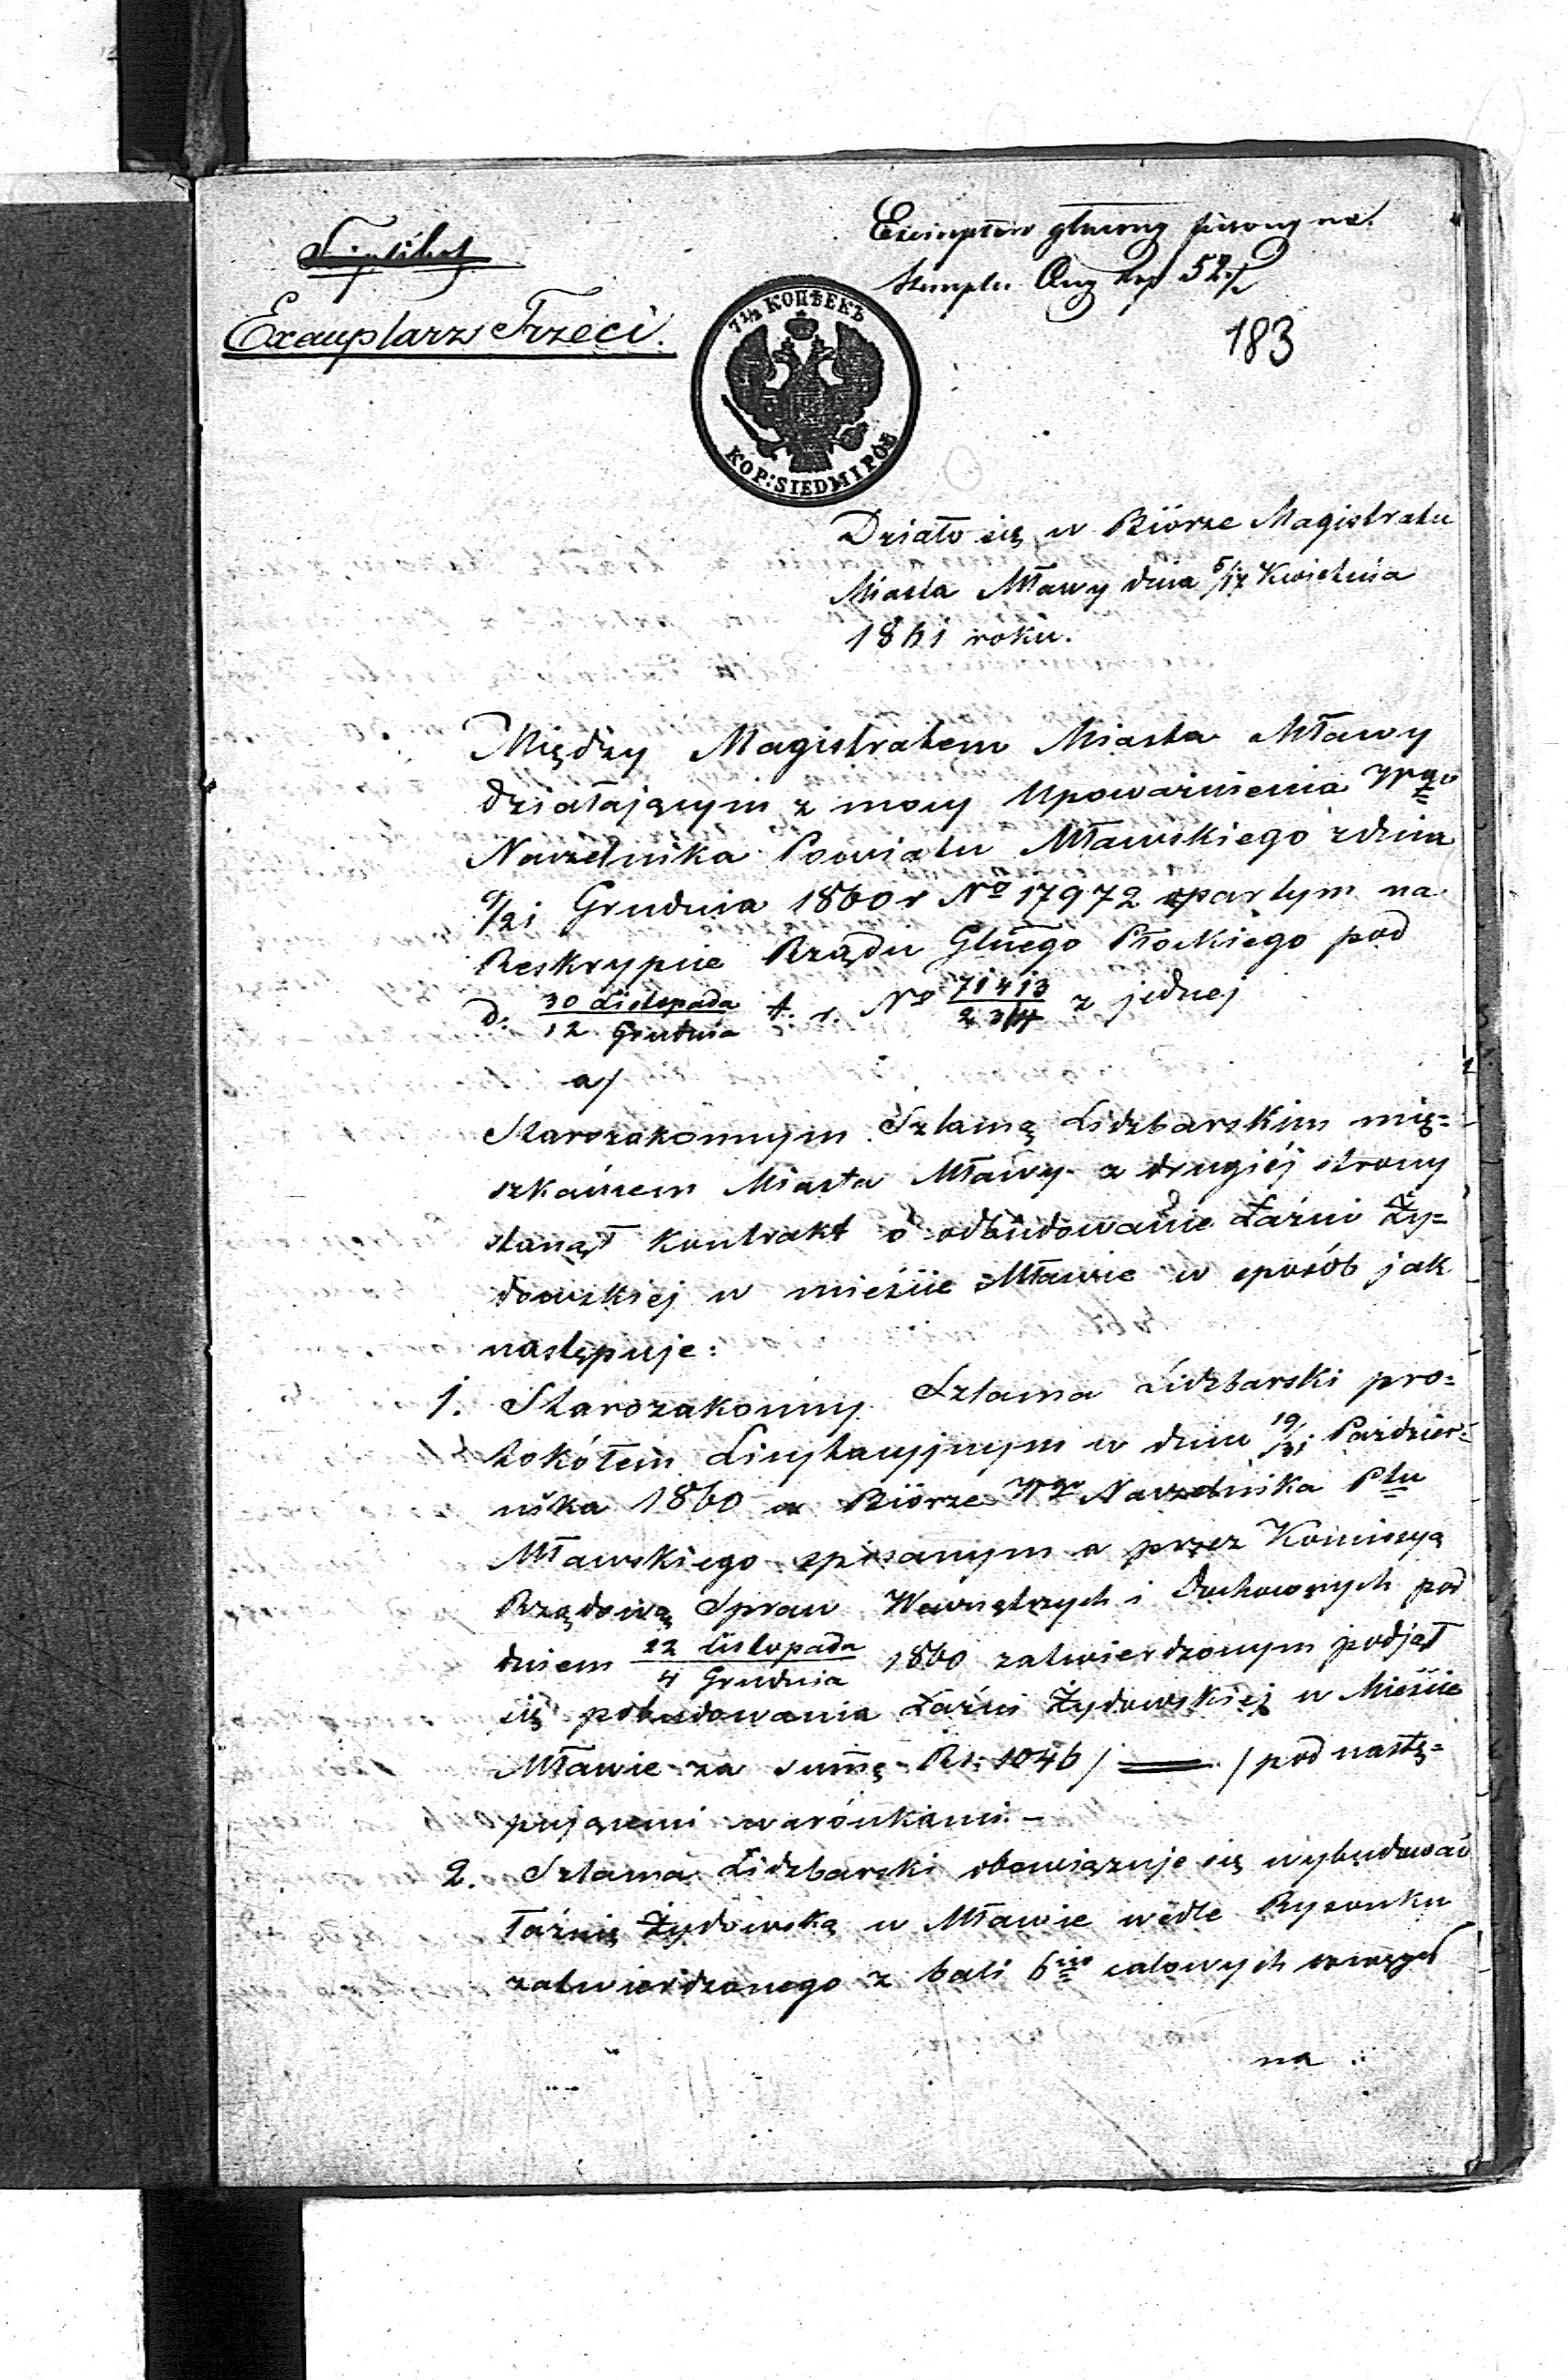 Exemplarz główny pisany na
Stemplu Ceny kop 52½
Exemplarz Trzeci.
183
7½ КОПѢЕКЪ
KOP: SIEDM I PÓŁ
Działo się w Biórze Magistratu
Miasta Mławy dnia 5/17 Kwietnia
1861 roku.
Między Magistratem Miasta Mławy
działającym z mocy Upoważnienia Wgo
Naczelnika Powiatu Mławskiego z dnia
9/21 Grudnia 1860 r No 17972 opartym na
Reskrypcie Rządu Glnego Płockiego pod
d. 30 Listopada / 12 Grudnia t. r. No 71413 / z jednej
a/
Starozakonnym Szlamą Lidzbarskim mię=
szkańcem Miasta Mławy z drugiéj strony
stanął kontrakt o odbudowanie Łaźni Ży=
dowskiej w mieście Mławie w sposób jak
następuje:
1. Starozakonny Szlama Lidzbarski pro=
tokółem Licytacyjnym w dniu 19/31 Paździer=
nika 1860 w Biórze Wgo Naczelnika Ptu
Mławskiego spisanym a przez Kommisyą
Rządową Spraw Wewnętrzych i Duchownych pod
dniem 22 Listopada / 4 Grudnia 1860 zatwierdzonym podjął
się pobudowania Łaźni Żydowskiej w Mieście
Mławie za summę Rs. 1046 / — / pod nastę=
pującemi warónkami. –
2. Szlama Lidzbarski obowiązuje się wybudować
łaźnię Żydowską w Mławie wedle Rysunku
zatwierdzonego z bali 6cio calowych
na